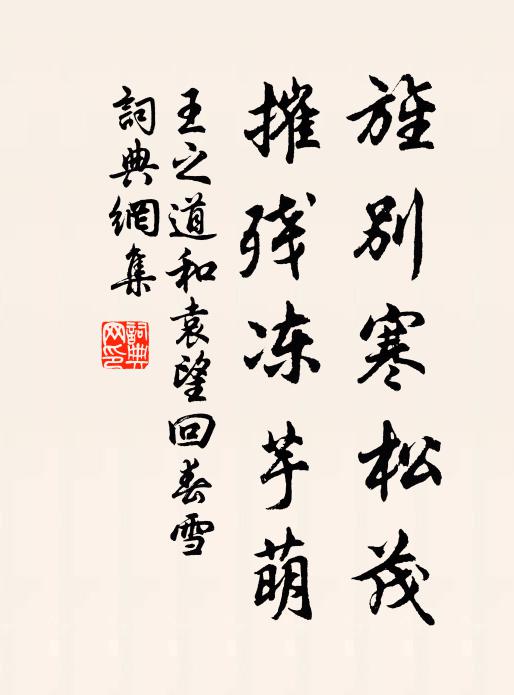 旌别寒松茂
摧残冻芋萌
王之道和袁望回春雪
詞典網集
詞典网印